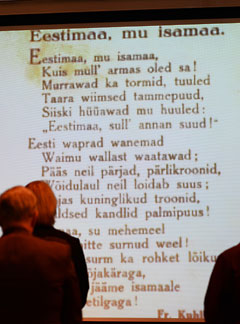 Eestimaa, mu isamaa.
Eestimaa, mu isamaa,
Kuis mull' armas oled sa!
Murrawad ka tormid, tuuled
Taara wiimsed tammepuud,
Siiski hüüawad mu huuled:
„Eestimaa, sull' annan suud!"
Eesti waprad wanemad
Waimu wallast waatawad;
Pääs neil pärjad, pärlikroonid,
Wõidulaul neil loidab suus;
kuninglikud troonid,
kandlid palmipuus!
su mehemeel
surnud weel!
surm ka rohket lõiku
jääme isamaale
Fr. Kuhl